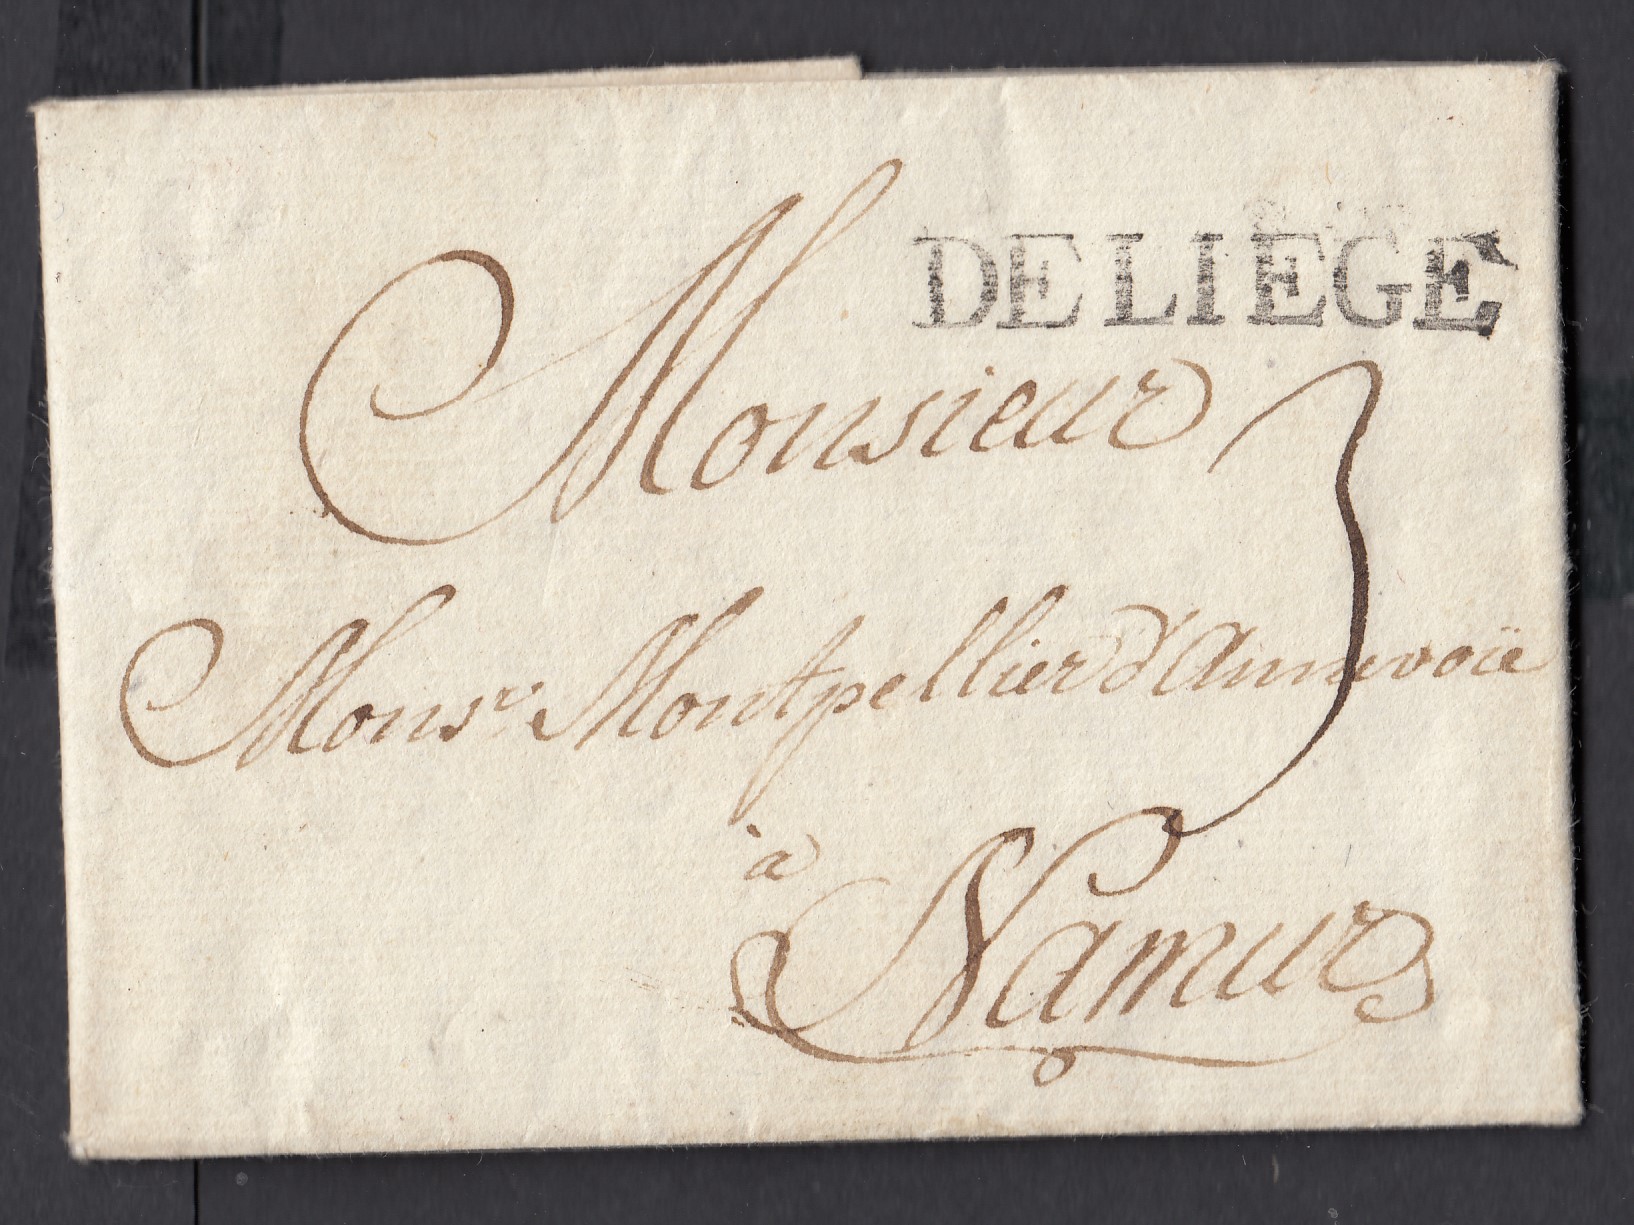 DE LIEGE
Monsieur
3
Mons.r Montpellier d'Annevoïe
à
Namur